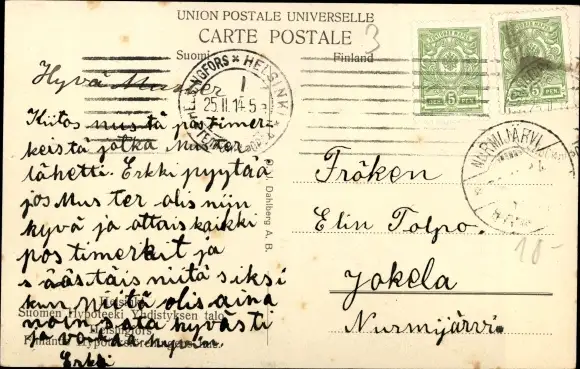 UNION POSTALE UNIVERSELLE
CARTE POSTALE
Suomi Finland
3
HELSINGFORS * HELSINKI
I
25.II.14.5
5 PEN. 5 PEN.
NURMIJÄRVI
Hyvä Muster
Kiitos niistä postimer-
keistä jotka Muster
lähetti. Erkki pyytää
jos Muster olis niin
hyvä ja ottais kaikki
postimerkit ja
säästäis niitä siksi
kun niitä olis aina
noin sata hyvästi
ja voikaa hyvin.
Erkki
Fröken
Elin Tolpo.
Jokela
Nurmijärvi
10-
Dahlberg A. B.
Suomen Hypoteeki Yhdistyksen talo
Helsingfors